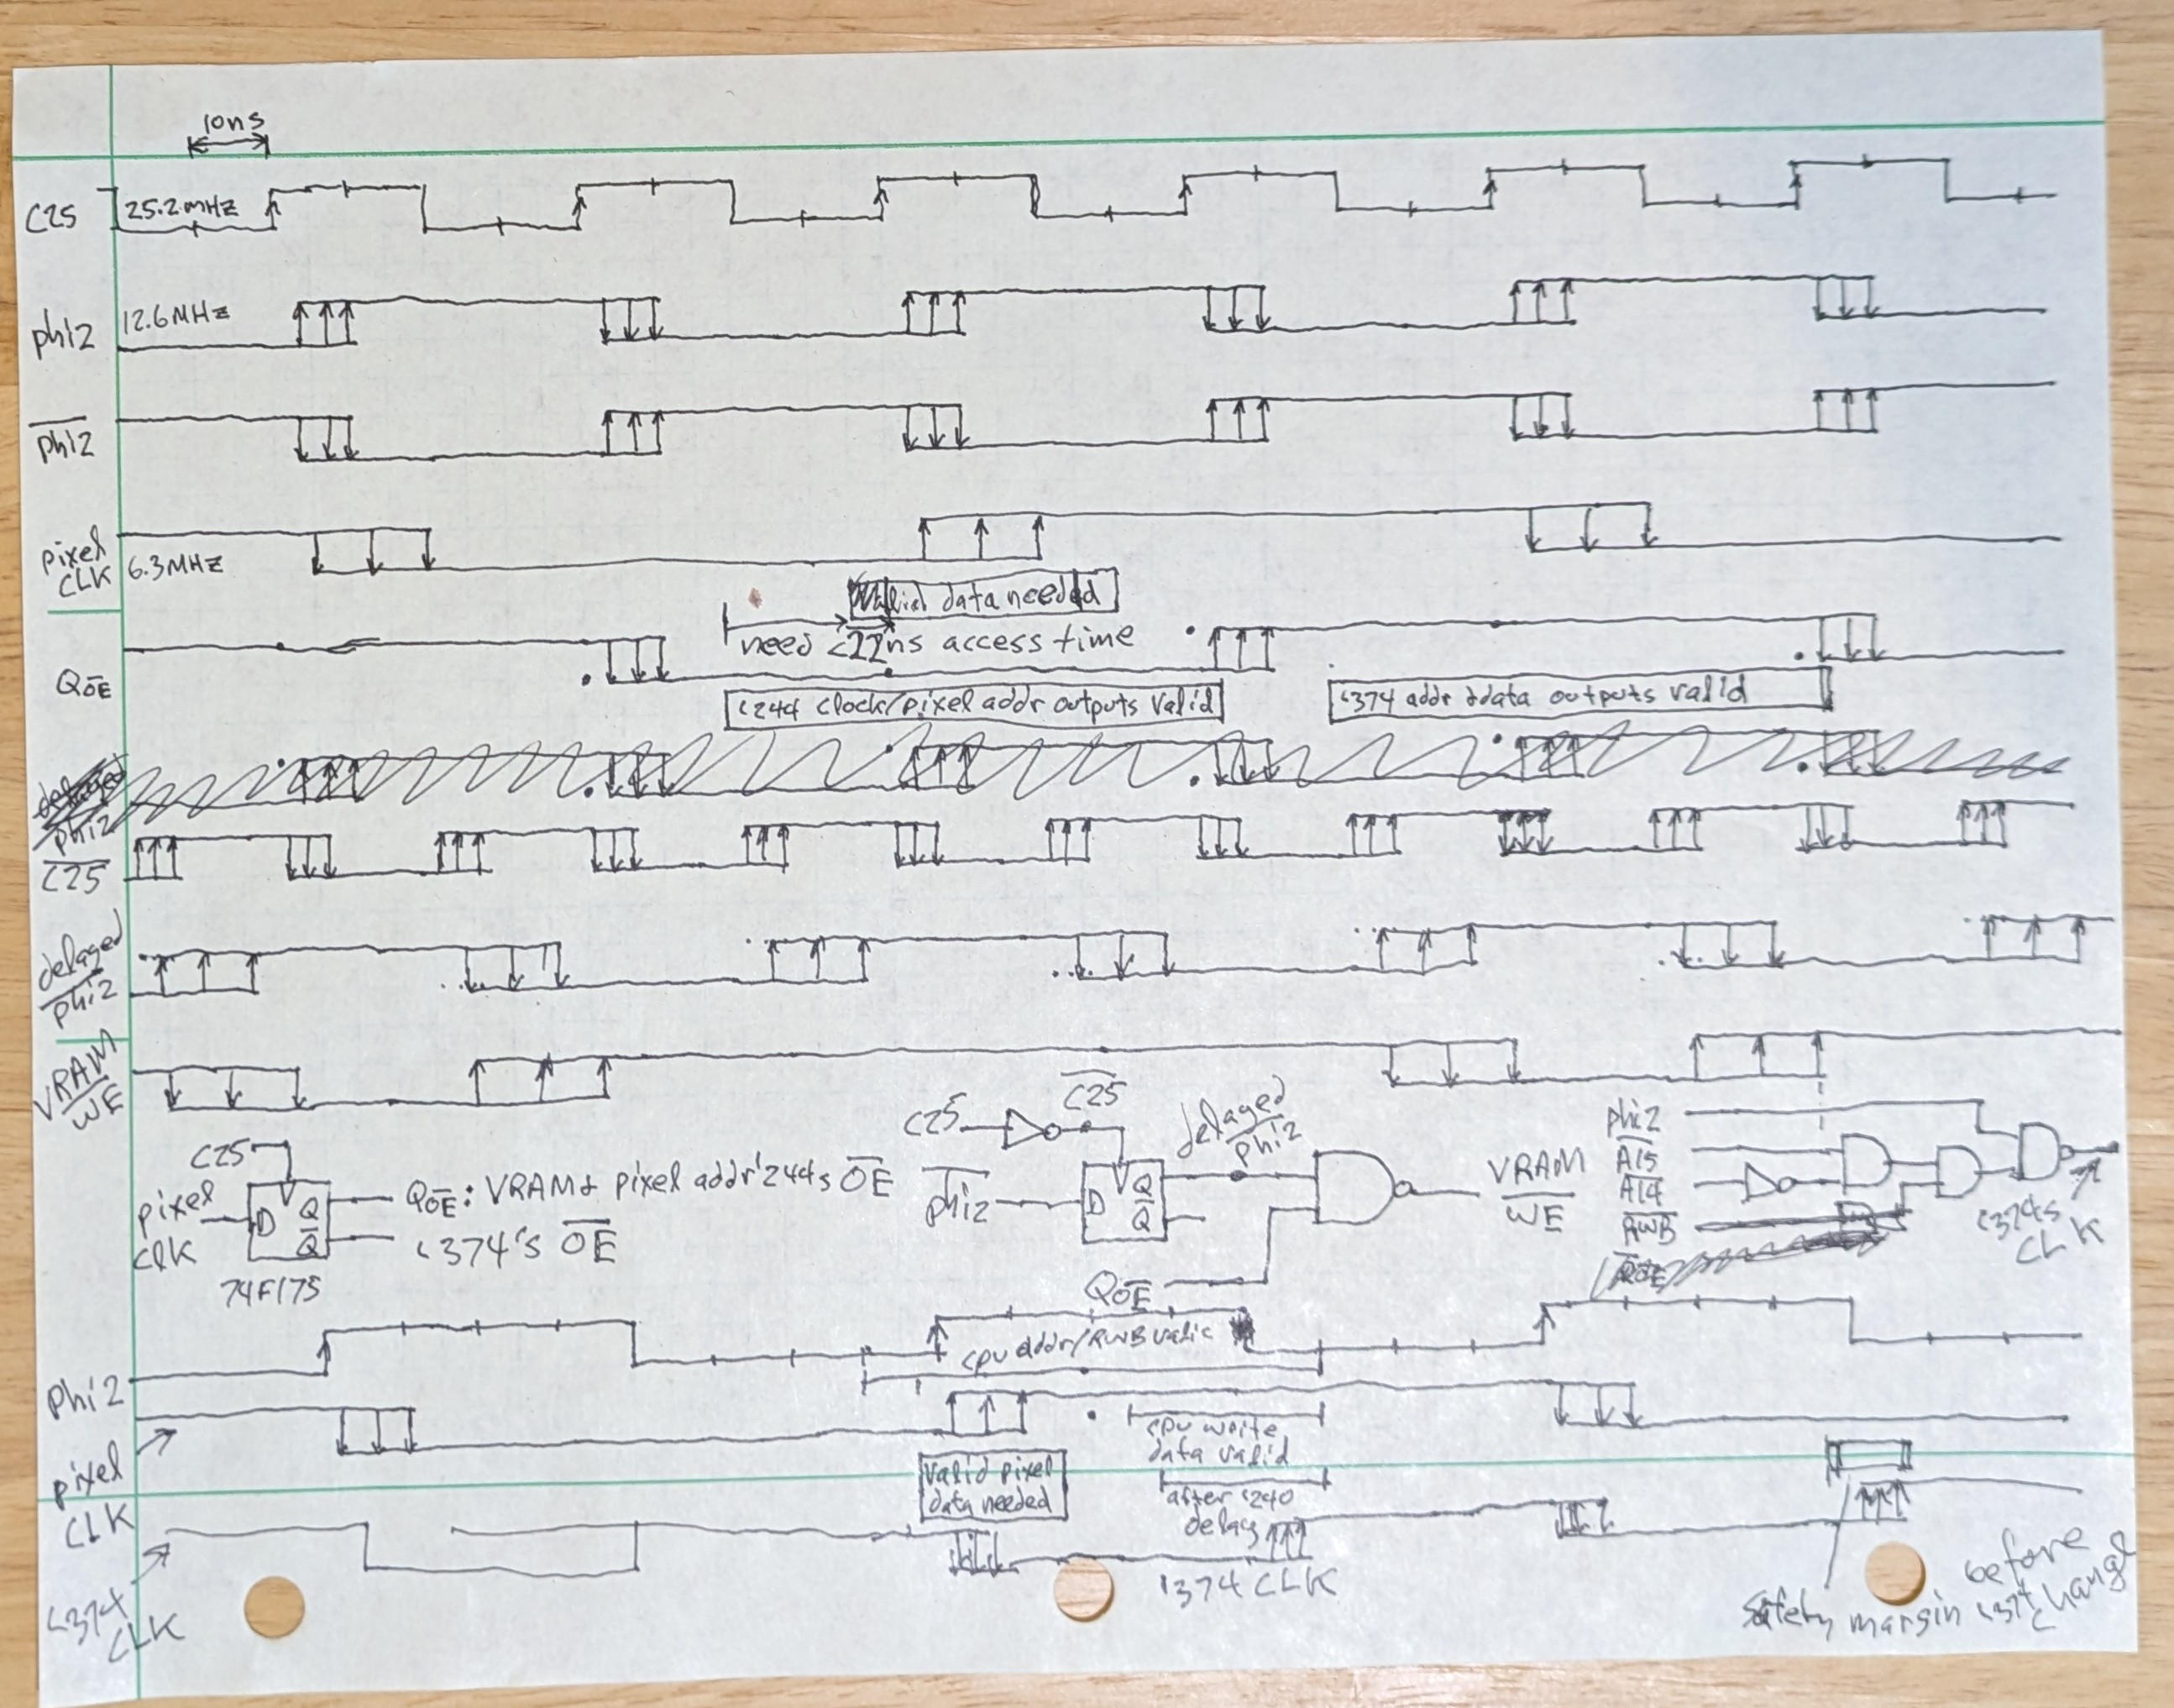 10ns
C25
25.2MHz
phi2
12.6MHz
phi2
pixel
CLK
6.3MHz
valid data needed
need <22ns access time
QOE
'244 clock/pixel addr outputs valid
'374 addr + data outputs valid
delayed
phi2
C25
delayed
phi2
VRAM
WE
C25
pixel
clk
D
Q
Q
74F175
QOE: VRAM & pixel addr '244s OE
'374's OE
C25
C25
phi2
D
Q
Q
delayed
phi2
QOE
VRAM
WE
phi2
A15
A14
RWB
QOE
'374s
CLK
phi2
cpu addr/RWB valid
pixel
CLK
cpu write
data valid
valid pixel
data needed
after '240
delay
'374 CLK
'374
CLK
safety margin before
'374 change